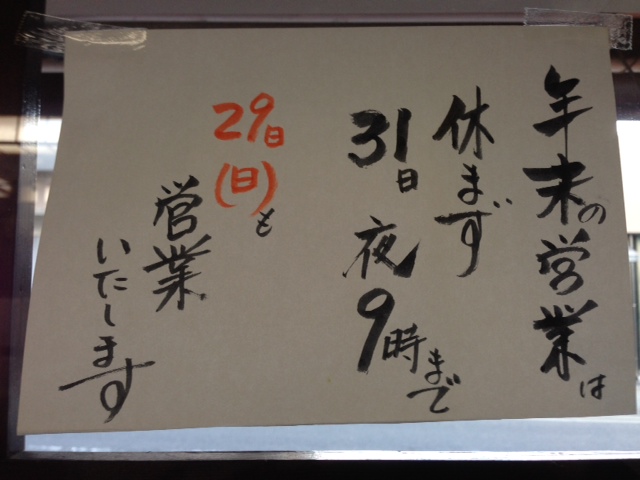 年末の営業は
休まず
31日夜9時まで
29日(日)も
営業
いたします